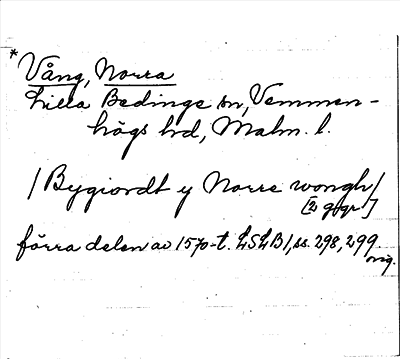 * Vång, Norra
Lilla Bedinge sn, Vemmen-
högs hd, Malm. l.
/Bygiordt y Norre wongh/
[2 ggr]
förra delen av 1570-t. LSLB1, ss. 298, 299
orig.